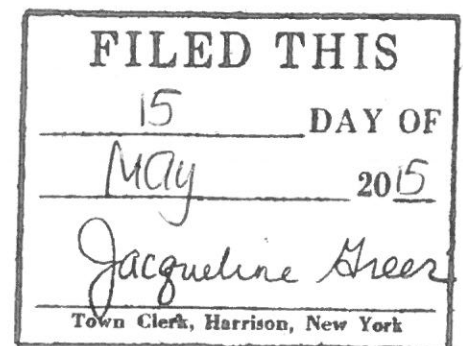 FILED THIS
15 DAY OF
May 2015
Jacqueline Greer
Town Clerk, Harrison, New York